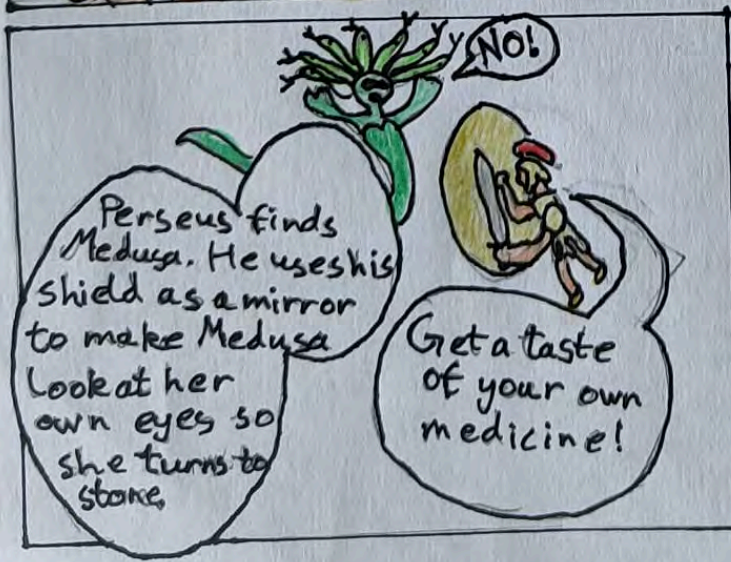 NO!
Perseus finds
Medusa. He uses his
shield as a mirror
to make Medusa
Look at her
own eyes so
she turns to
stone.
Get a taste
of your own
medicine!